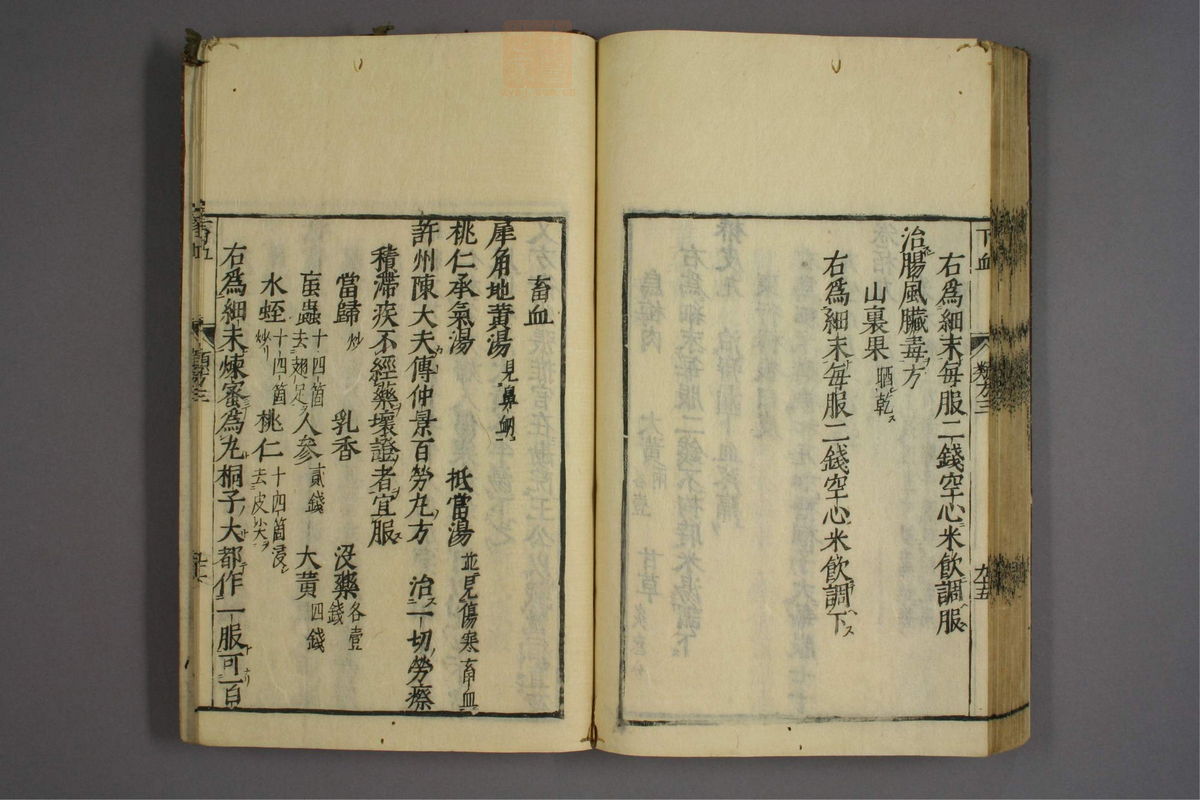 下血
類方三
九十五
右爲細末毎服二錢空心米飲調服
治腸風臟毒方
山裏果 晒乾
右爲細末毎服二錢空心米飲調下
畜血
犀角地黃湯 見鼻衂
桃仁承氣湯 抵當湯 並見傷寒畜血
許州陳大夫傳仲景百勞丸方 治一切勞瘵
積滯疾不經藥壞證者宜服
當歸 炒 乳香 没藥 各壹錢
䖟蟲 十四箇去翅足 人参 貳錢 大黃 四錢
水蛭 十四箇炒 桃仁 十四箇浸去皮尖
右爲細末煉蜜爲丸桐子大都作一服可百
畜血
類方三